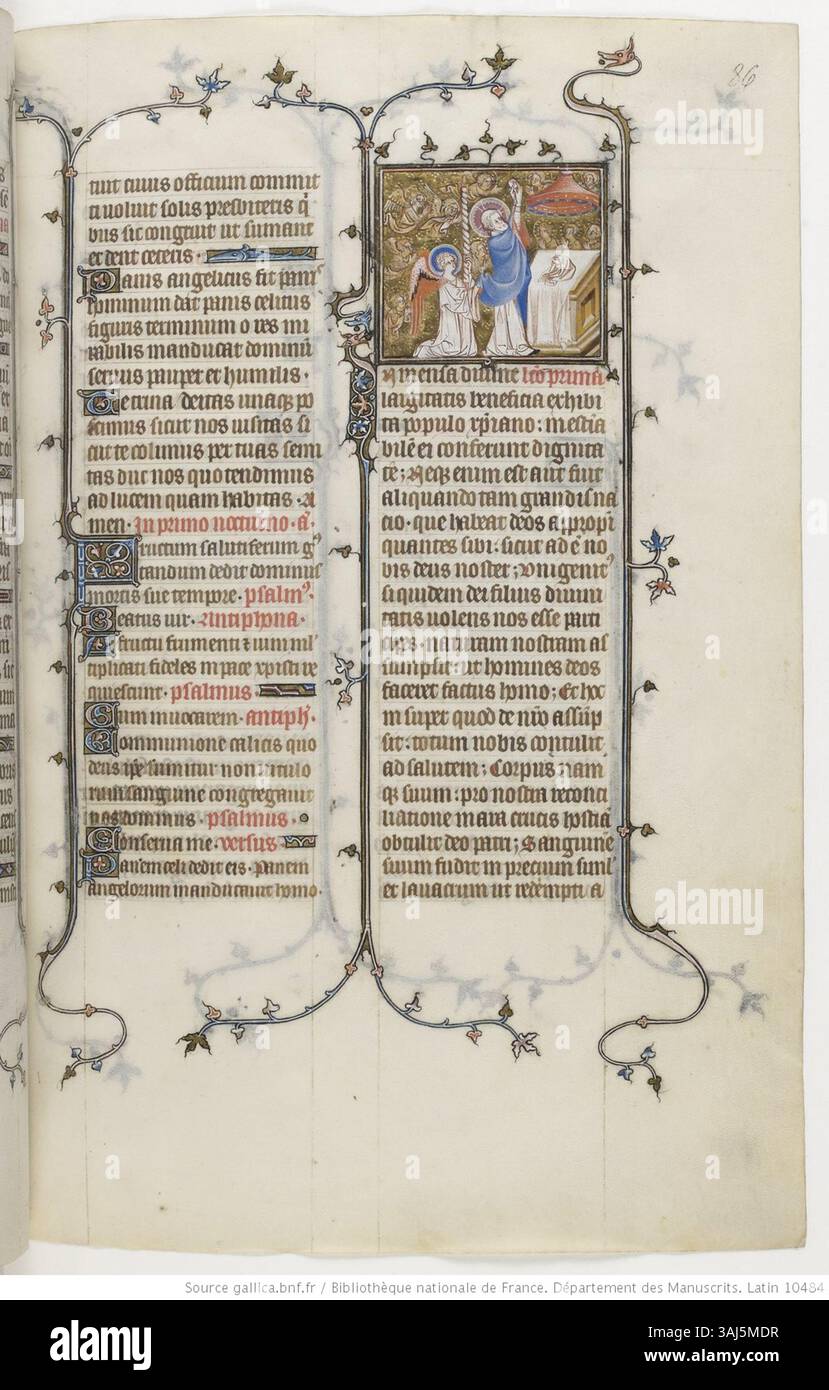 86
tuit cuius officium commit
ti voluit solis presbiteris q̄
bus sic congruit ut sumant
et dent ceteris.
Panis angelicus fit panis
hominum dat panis celicus
figuris terminum o res mi
rabilis manducat dominū
servus pauper et humilis.
Te trina deitas unaqꝫ po
scimus sicut nos visitas si
cut te colimus per tuas semi
tas duc nos quo tendimus
ad lucem quam habitas. A
men. In primo nocturno. aͣ.
Fructum salutiferum gꝰ
tandum dedit dominus
mortis sue tempore. psalmꝰ.
Beatus vir. Antiphona.
A fructu frumenti ⁊ vini ml'
tiplicati fideles in pace xpisti re
quiescunt. psalmus
Cum invocarem. antiph'.
Communione calicis quo
deus ip̄e sumitur non vitulo
rum sanguine congregavit
nos dominus. psalmus.
Conserva me. versus
Panem celi dedit eis. Panem
angelorum manducavit homo.
mensa divine lc̄o prima
largitatis beneficia exhibi
ta populo xp̄iano: inestia
bilē ei conferunt dignita
tē; Neqꝫ enim est aut fuit
aliquando tam grandis na
cio. que habeat deos appropi
quantes sibi: sicut adē no
bis deus noster; Unigenitꝰ
siquidem dei filius divini
tatis volens nos esse parti
cipes. naturam nostram as
sumpsit: ut homines deos
faceret factus homo; Et hoc
insuper quod de nr̄o assūp
sit: totum nobis contulit
ad salutem; Corpus nam
qꝫ suum: pro nostra reconci
liatione in ara crucis hostiā
obtulit deo patri; Sanguinē
suum fudit in precium siml'
et lavacrum ut redempti a
Source gallica.bnf.fr / Bibliothèque nationale de France. Département des Manuscrits. Latin 10484
alamy
Image ID: 3AJ5MDR
www.alamy.com